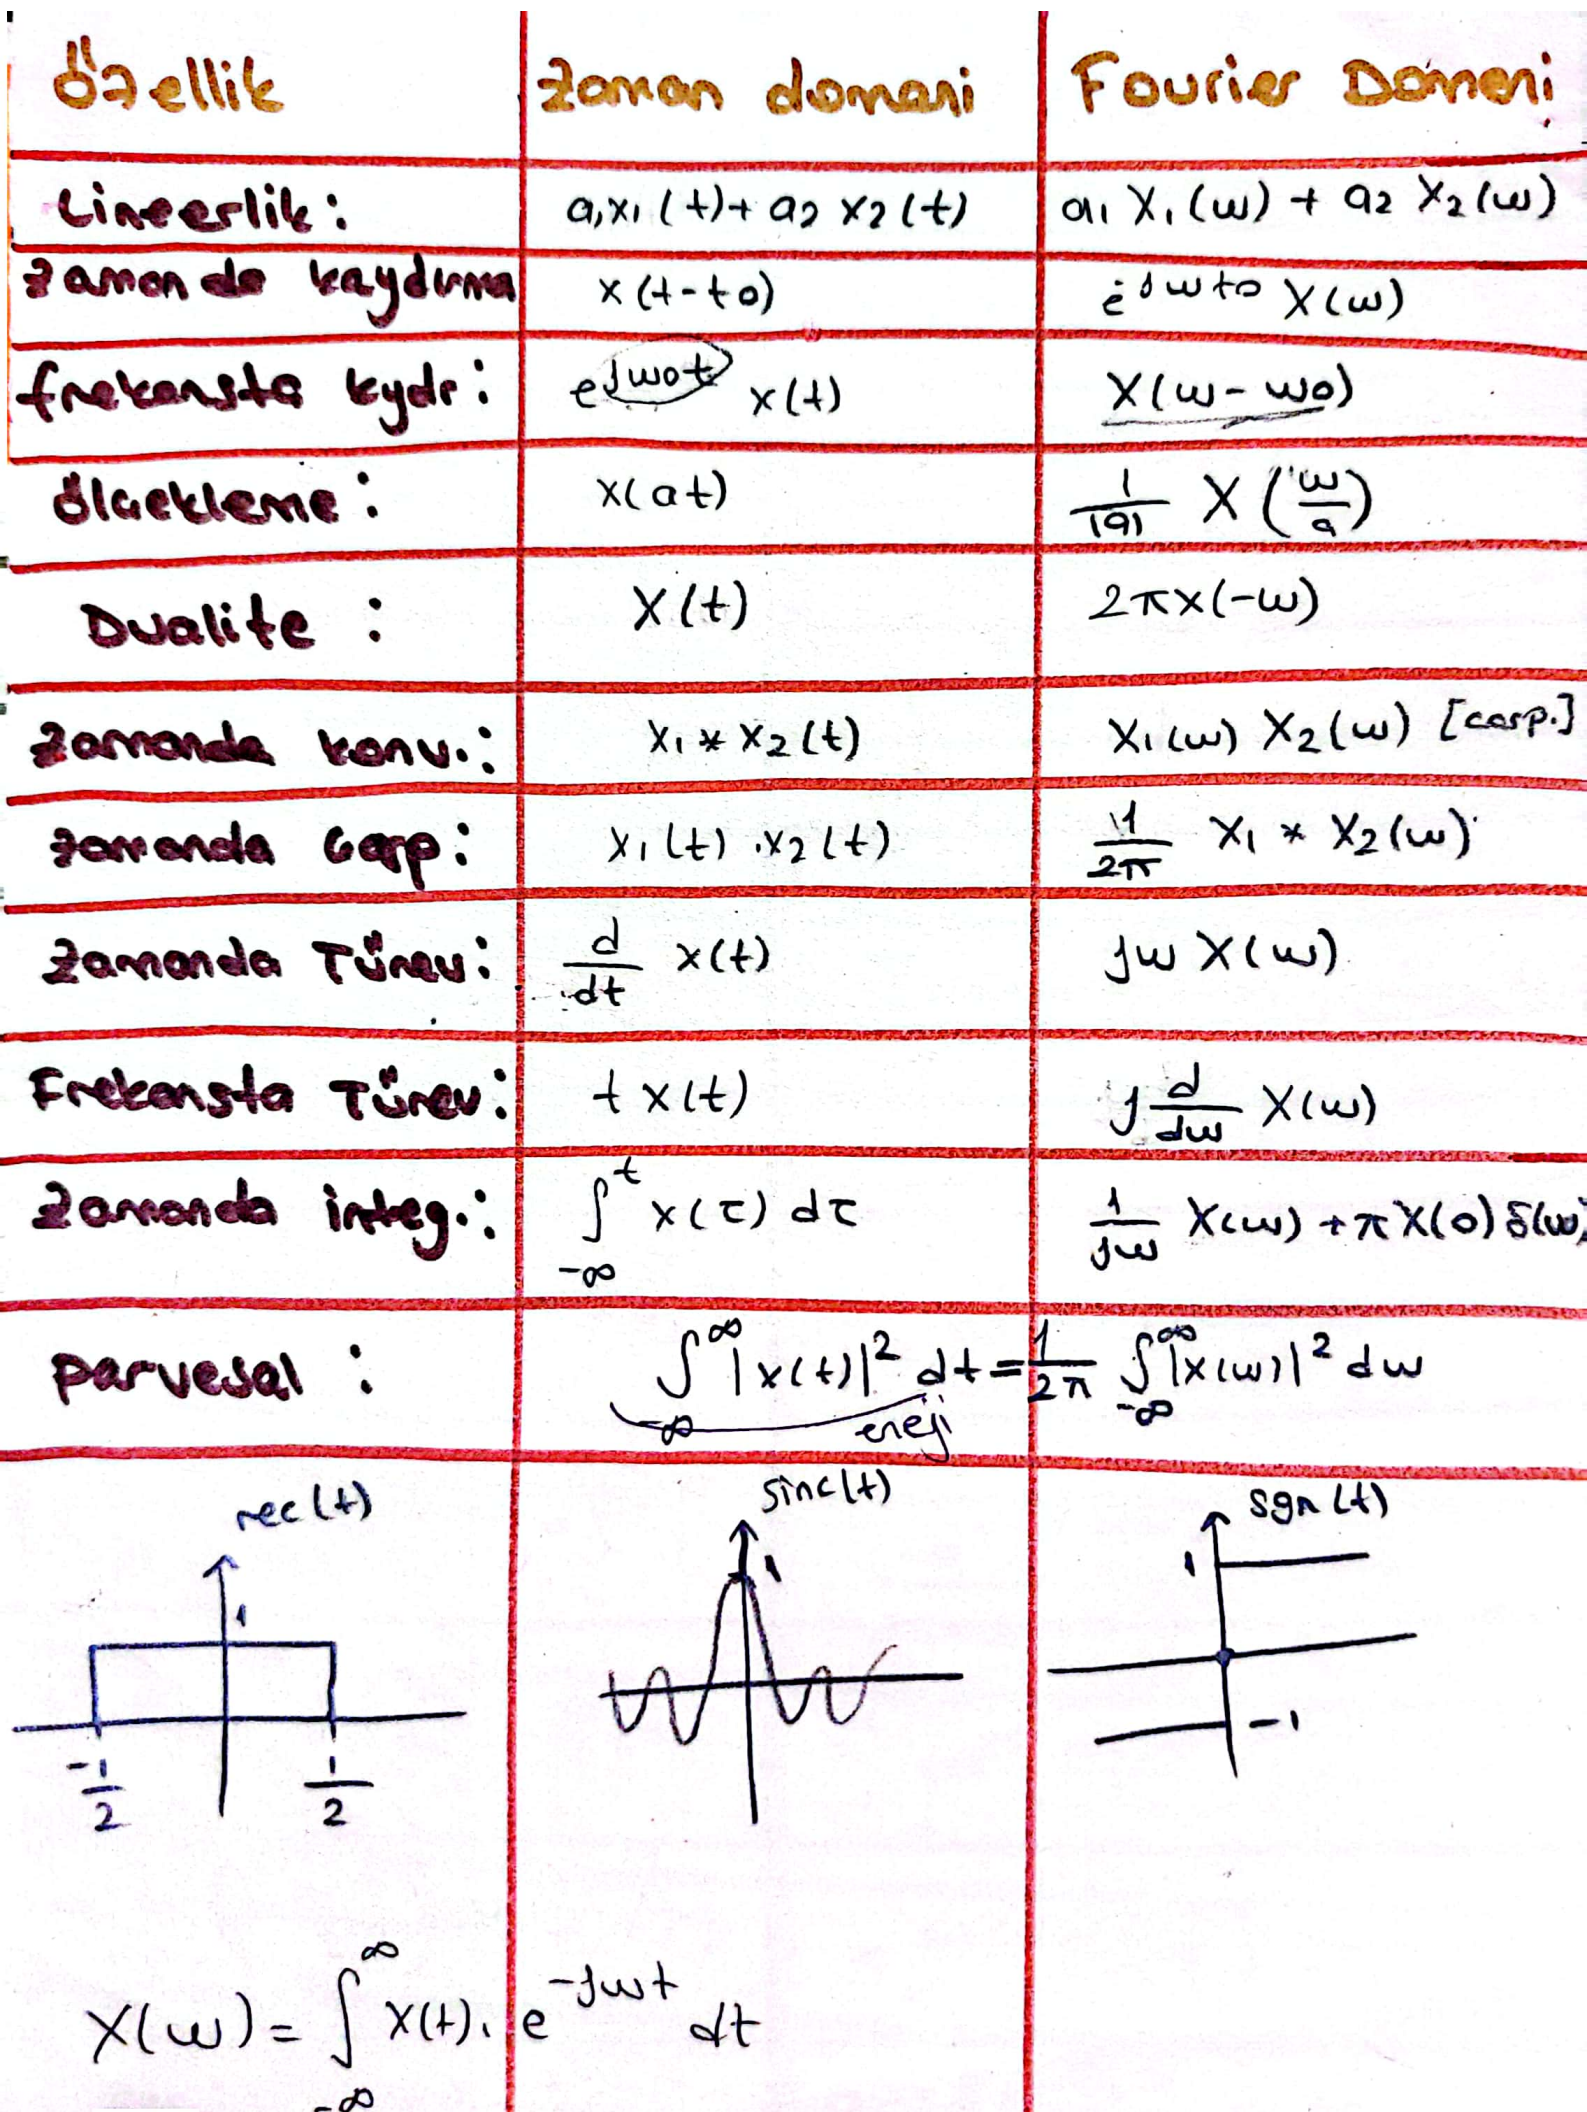 Özellik zaman domani Fourier Domeni
Lineerlik: a₁x₁(t)+ a₂ x₂(t) a₁ X₁(w) + a₂ X₂(w)
zamanda kaydırma x(t-t0) e^jwt0 X(w)
frekansta kydr: e^jw0t x(t) X(w-w0)
ölçekleme: x(at) 1/|a| X(w/a)
Dualite : X(t) 2πx(-w)
zamanda konv.: x₁ * x₂(t) X₁(w) X₂(w) [carp.]
zamanda carp: x₁(t) . x₂(t) 1/2π X₁ * X₂(w)
zamanda Türev: d/dt x(t) jw X(w)
Frekansta Türev: t x(t) j d/dw X(w)
zamanda integ.: ∫_-∞^t x(τ) dτ 1/jw X(w) + π X(0) δ(w)
parvesal : ∫_-∞^∞ |x(t)|² dt = 1/2π ∫_-∞^∞ |X(w)|² dw
enerji
rec(t) sinc(t) sgn(t)
1 1 1
-1/2 1/2 -1
X(w) = ∫_-∞^∞ x(t). e^-jwt dt